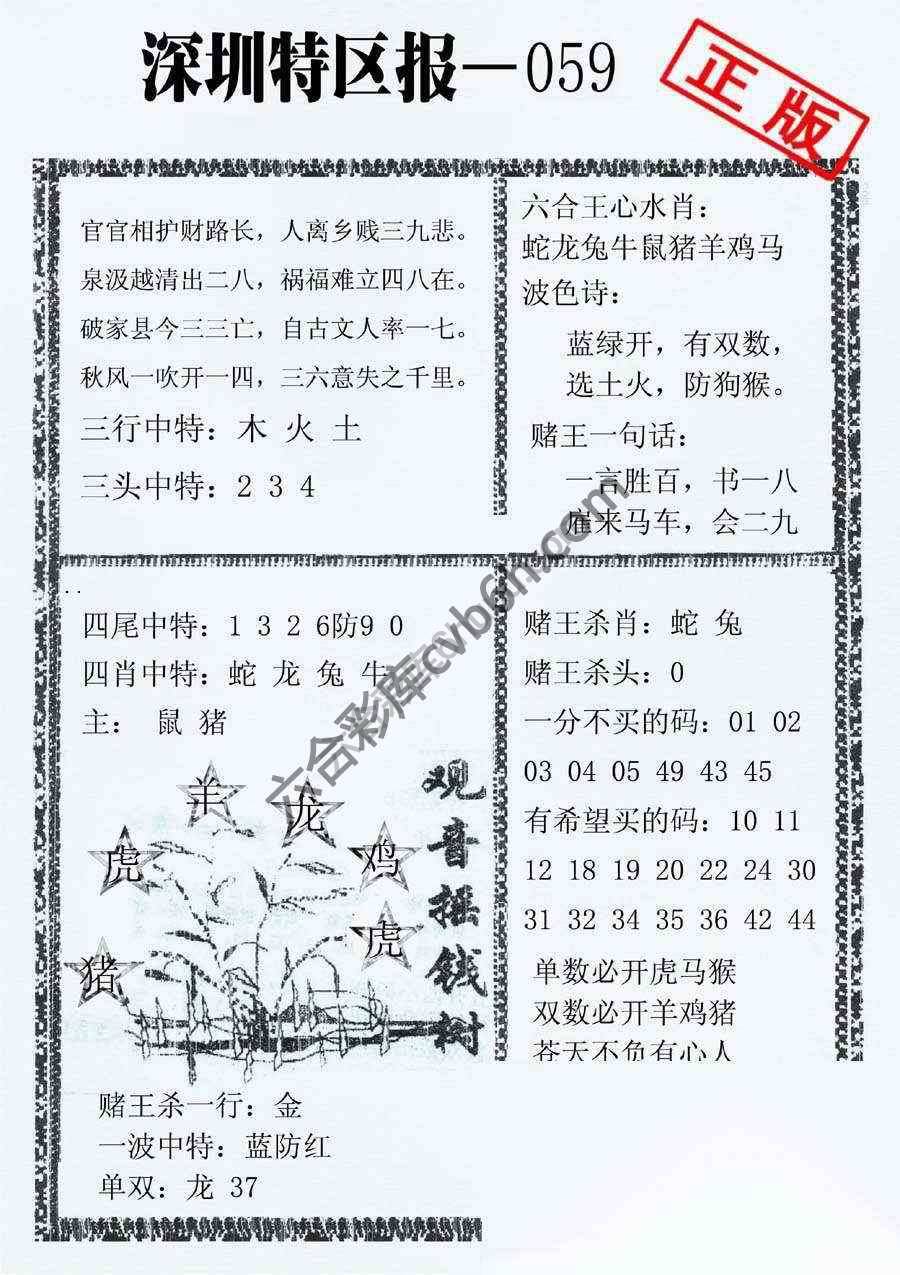 深圳特区报—059
正版
官官相护财路长，人离乡贱三九悲。
泉汲越清出二八，祸福难立四八在。
破家县今三三亡，自古文人率一七。
秋风一吹开一四，三六意失之千里。
三行中特：木 火 土
三头中特：2 3 4
六合王心水肖：
蛇龙兔牛鼠猪羊鸡马
波色诗：
蓝绿开，有双数，
选土火，防狗猴。
赌王一句话：
一言胜百，书一八
雇来马车，会二九
四尾中特：1 3 2 6防9 0
四肖中特：蛇 龙 兔 牛
主： 鼠 猪
羊
龙
虎
鸡
虎
猪
观音摇钱树
赌王杀一行：金
一波中特：蓝防红
单双：龙 37
赌王杀肖：蛇 兔
赌王杀头：0
一分不买的码：01 02
03 04 05 49 43 45
有希望买的码：10 11
12 18 19 20 22 24 30
31 32 34 35 36 42 44
单数必开虎马猴
双数必开羊鸡猪
苍天不负有心人
六合彩库cvb6h.com